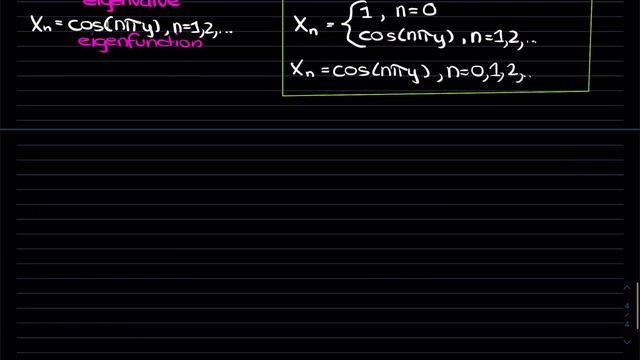 eigenvalue
Xn = cos(nπy), n=1,2,...
eigenfunction
Xn = { 1, n=0
cos(nπy), n=1,2,...
Xn = cos(nπy), n=0,1,2,...
4
4